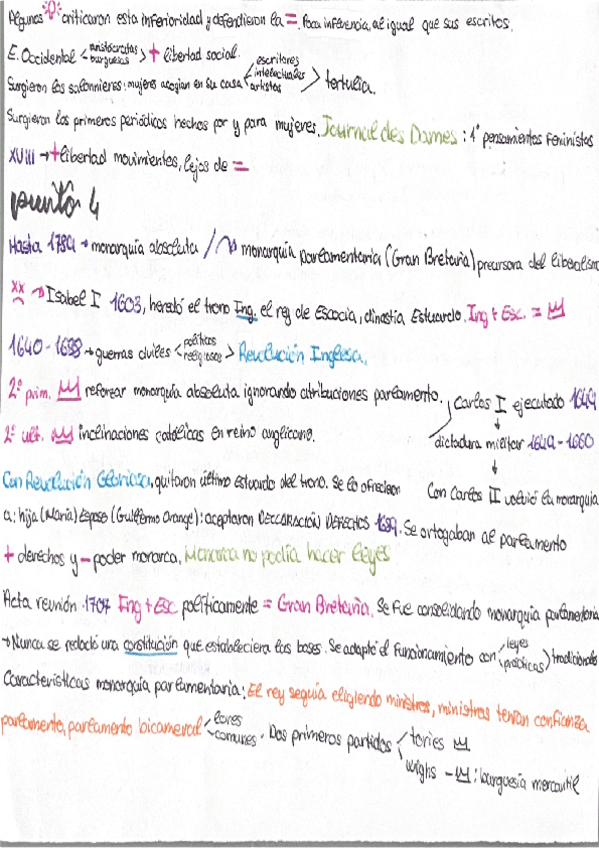 Algunos criticaron esta inferioridad y defendieron la =. Poca influencia, al igual que sus escritos.
E. Occidental < aristócratas burguesas > + libertad social.
Surgieron las salonnieres: mujeres acogían en su casa < escritores intelectuales artistas > tertulia.
Surgieron los primeros periódicos hechos por y para mujeres. Journal des Dames: 1º pensamientos feministas
XVIII → + libertad movimientos, lejos de =
punto 4
Hasta 1789 → monarquía absoluta / monarquía parlamentaria (Gran Bretaña) precursora del liberalismo
xx → Isabel I 1603, heredó el trono Ing. el rey de Escocia, dinastía Estuardo. Ing + Esc. =
1640 - 1688 → guerras civiles < políticas religiosas > Revolución Inglesa.
2º prim. reforzar monarquía absoluta ignorando atribuciones parlamento. Carlos I ejecutado 1649
2º ult. inclinaciones católicas en reino anglicano. dictadura militar 1649 - 1660
Con Revolución Gloriosa, quitaron último estuardo del trono. Se lo ofrecieron Con Carlos II volvió la monarquía
a: hija (María) Esposo (Guillermo Orange): aceptaron DECLARACIÓN DERECHOS 1689. Se ortogaban al parlamento
+ derechos y - poder monarca. Monarca no podía hacer leyes
Acta reunión 1707 Ing + Esc políticamente = Gran Bretaña. Se fue consolidando monarquía parlamentaria
→ Nunca se redactó una constitución que estableciera las bases. Se adaptó el funcionamiento con < leyes prácticas > tradicionales
Características monarquía parlamentaria: El rey seguía eligiendo ministros, ministros tenían confianza
parlamento, parlamento bicameral < lores comunes. Dos primeros partidos < tories
wighs - : burguesía mercantil